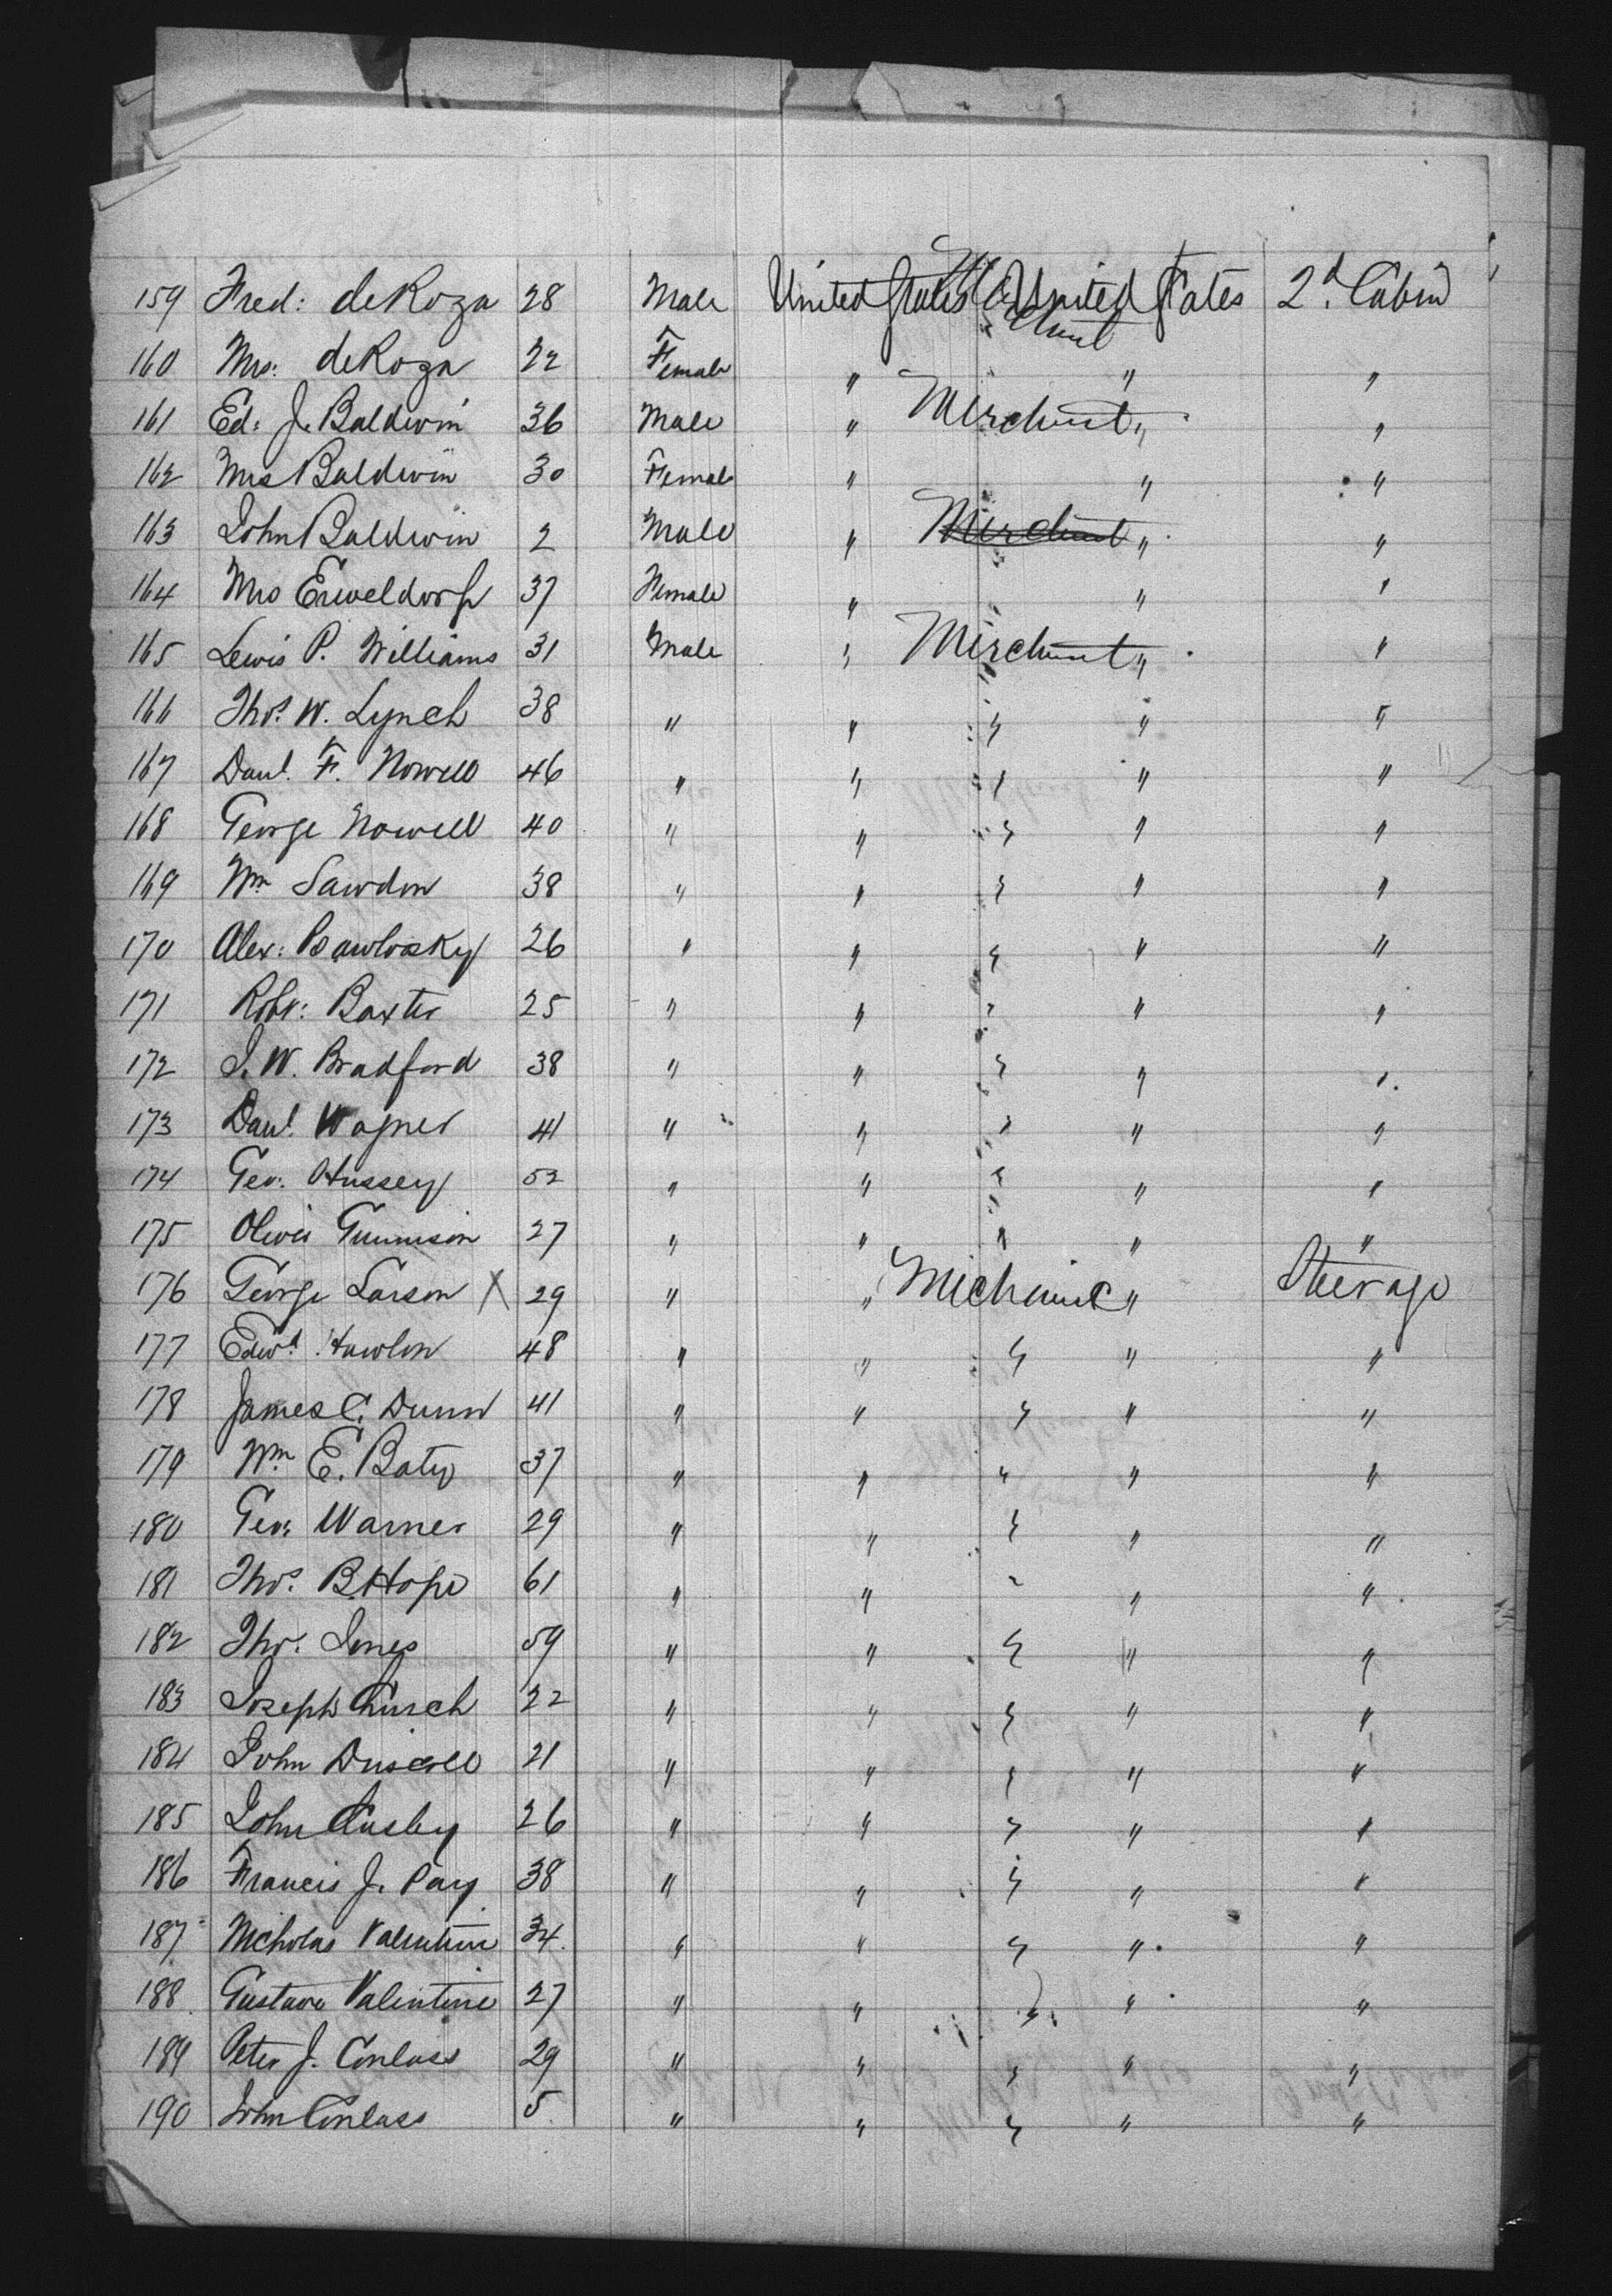 159 Fred: deRoza 28 Male United States Merchant United States 2d. Cabin
160 Mrs: deRoza 22 Female " " "
161 Ed: J. Baldwin 36 Male " Merchant " "
162 Mrs Baldwin 30 Female " " "
163 John Baldwin 2 Male " Merchant " "
164 Mrs 37 Female " " "
165 Lewis P. Williams 31 Male " Merchant " "
166 Thos. W. Lynch 38 " " " " "
167 Danl. F. Nowell 46 " " " " "
168 George Nowell 40 " " " " "
169 Wm Sawdon 38 " " " " "
170 Alex: 26 " " " " "
171 Robt: Baxter 25 " " " " "
172 J. W. Bradford 38 " " " " "
173 Danl. Wagner 41 " " " " "
174 Geo. Hussey 52 " " " " "
175 Oliver Gunnison 27 " " " " "
176 George Larson X 29 " " Mechanic " Steerage
177 Edwd. 48 " " " " "
178 James C. Dunn 41 " " " " "
179 Wm E. Baty 37 " " " " "
180 Geo: Warner 29 " " " " "
181 Thos. B. Hope 61 " " " " "
182 Tho. Jones 59 " " " " "
183 Joseph Church 22 " " " " "
184 John Driscoll 21 " " " " "
185 John 26 " " " " "
186 Francis J. 38 " " " " "
187 Nicholas Valentine 34 " " " " "
188 Gustave Valentine 27 " " " " "
189 Peter J. Conlass 29 " " " " "
190 John Conlass 5 " " " " "